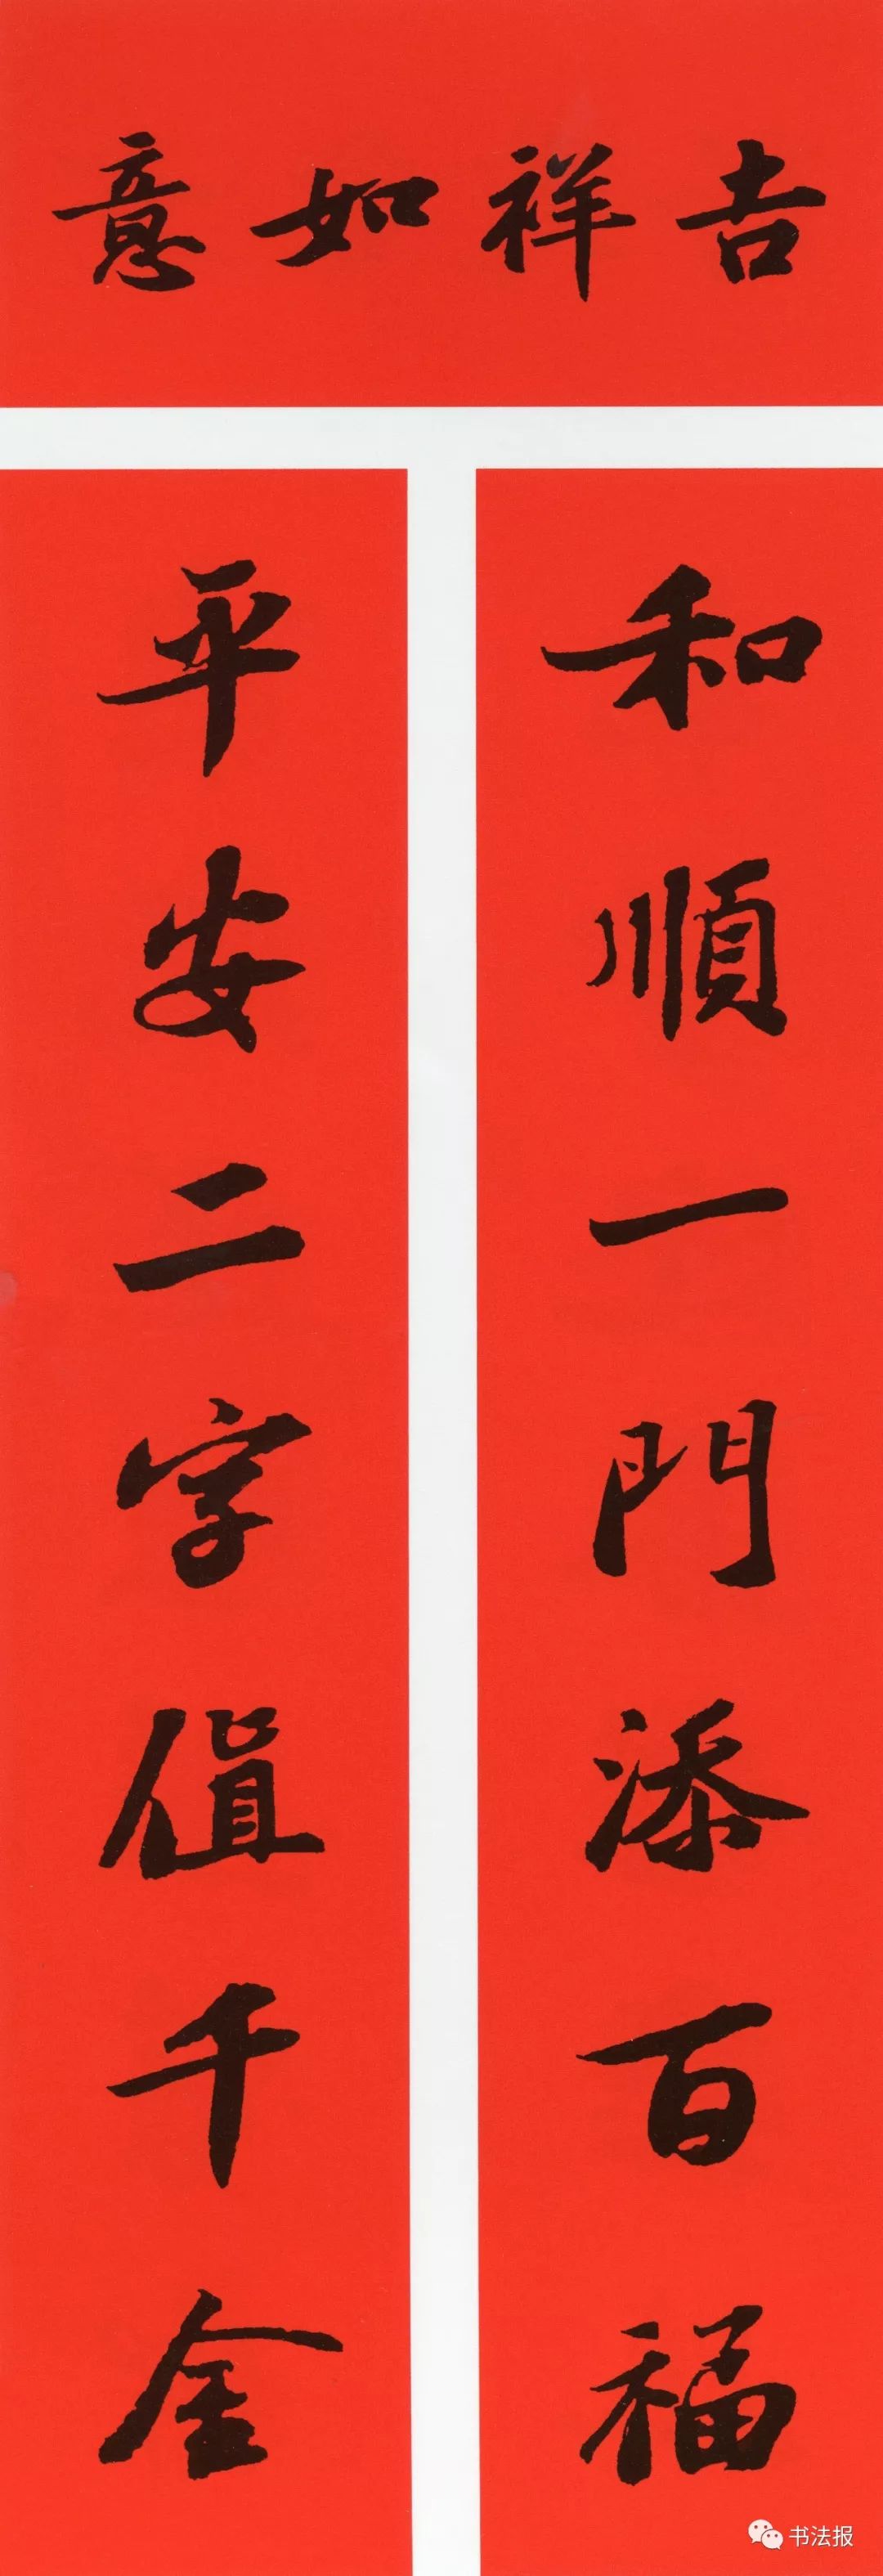 吉祥如意
和順一門添百福
平安二字值千金
书法报